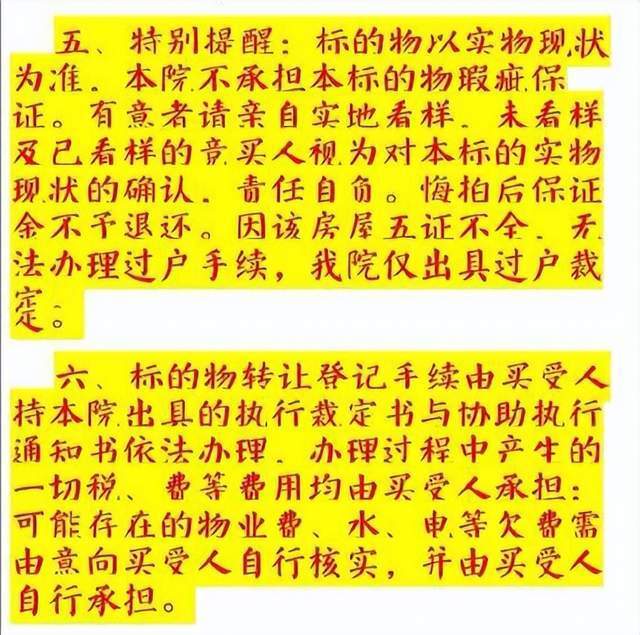 五、特别提醒：标的物以实物现状
为准，本院不承担本标的物瑕疵保
证。有意者请亲自实地看样，未看样
及已看样的竞买人视为对本标的实物
现状的确认，责任自负。悔拍后保证
金不予退还。因该房屋五证不全，无
法办理过户手续，我院仅出具过户裁
定。
六、标的物转让登记手续由买受人
持本院出具的执行裁定书与协助执行
通知书依法办理，办理过程中产生的
一切税、费等费用均由买受人承担；
可能存在的物业费、水、电等欠费需
由意向买受人自行核实，并由买受人
自行承担。